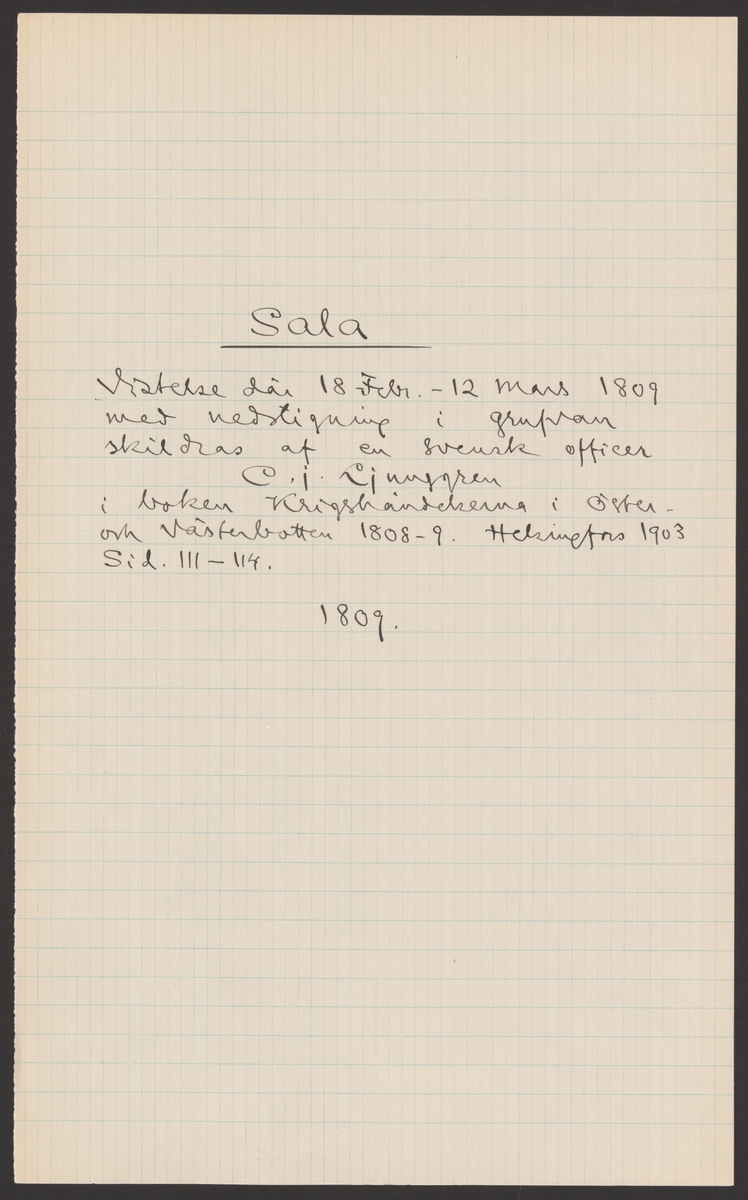 Sala
Vistelse där 18 Febr. - 12 Mars 1809
med nedstigning i grufvan
skildras af en svensk officer
C. j. Ljunggren
i boken Krigshändelserna i Öster-
och Västerbotten 1808-9. Helsingfors 1903
Sid. 111-114.
1809.